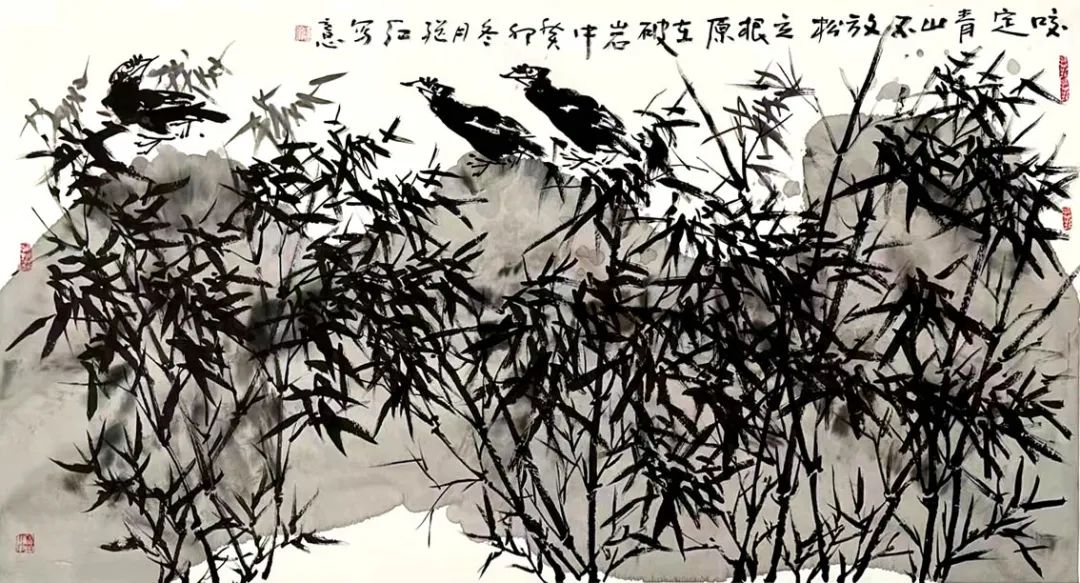 咬定青山不放松立根原在破岩中癸卯冬月写意